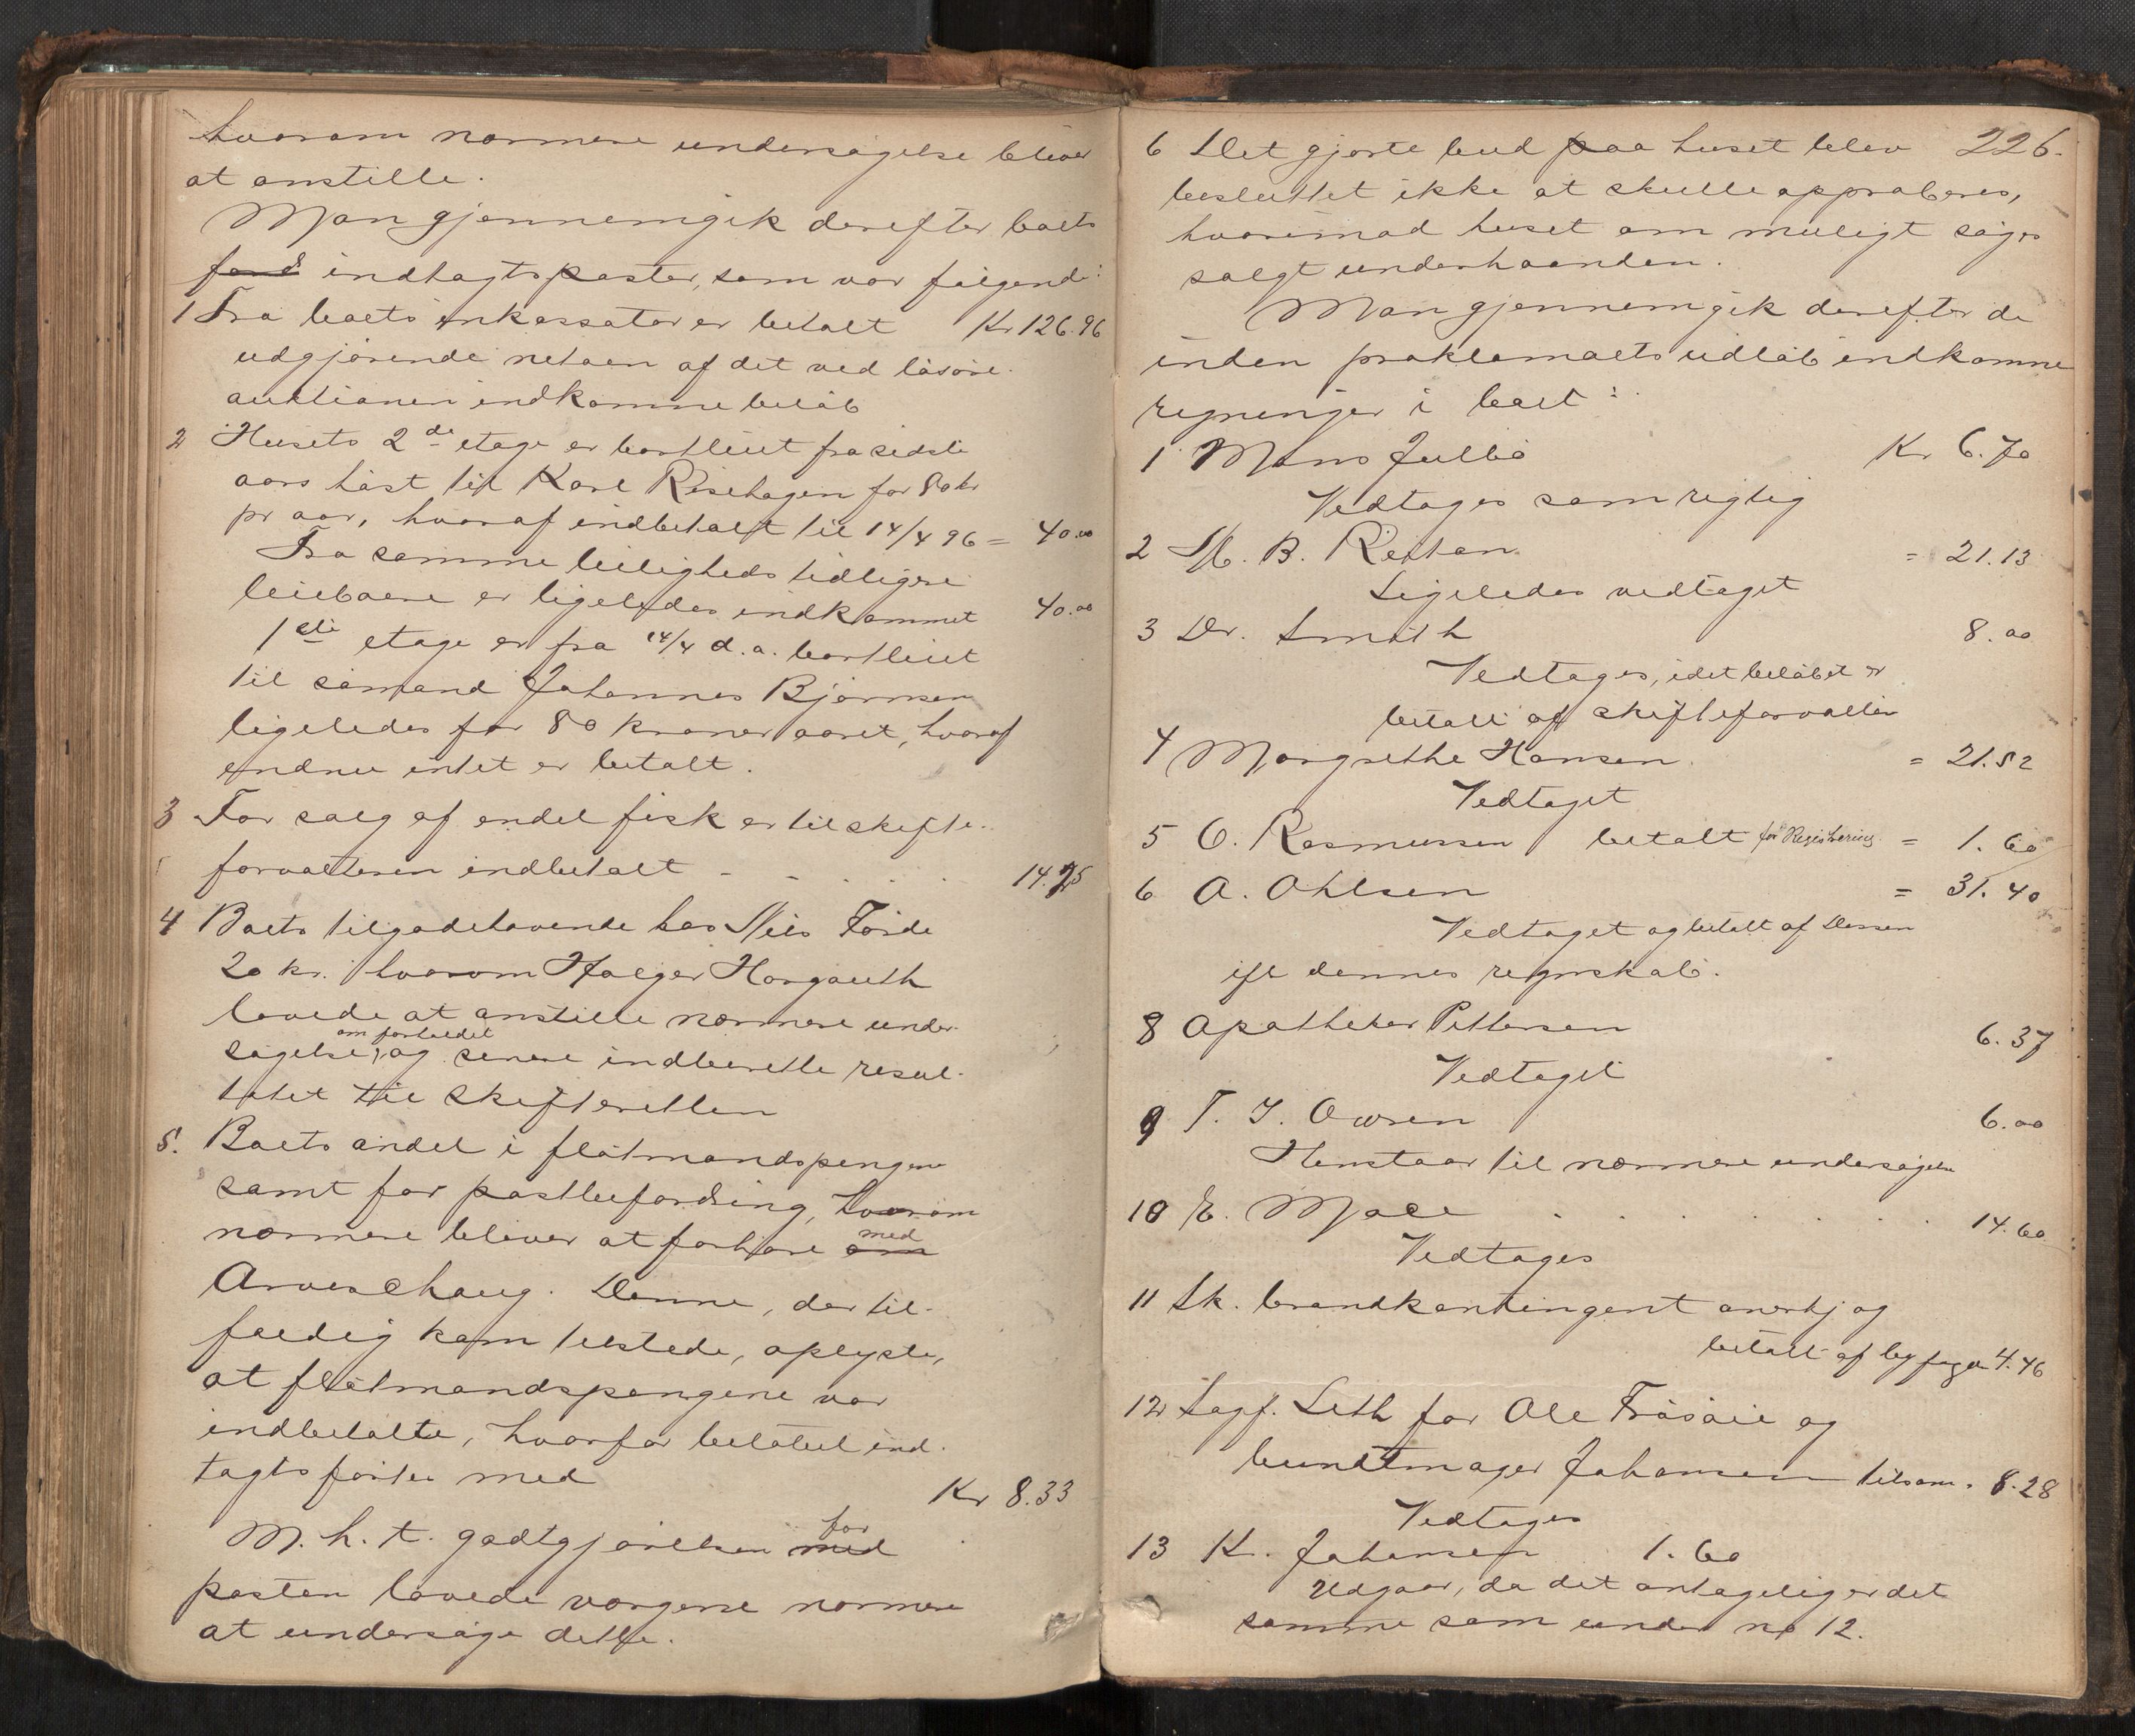 hvorom nærmere undersøgelse bliver
at anstille.
Man gjennemgik derefter boets
ford indtagtsposter, som var følgende:
1 Fra boets inkassator er betalt Kr 126.96
udgjørende netoen af det ved løsøre-
auktionen indkomne beløb
2 Husets 2de etage er bortleiet fra sidste
aars høst til Karl Risehagen for 80 kr
pr aar, hvoraf indbetalt til 14/4 96 = 40.00
Fra samme leiligheds tidligere
leieboere er ligeledes indkommet 40.00
1ste etage er fra 14/4 d.a. bortleiet
til sømand Johannes Bjørnsen
ligeledes for 80 kroner aaret, hvoraf
endnu intet er betalt.
3 For salg af endel fisk er til skifte-
forvalteren indbetalt - - . . . 14.25
4 Boets tilgodehavende hos Nils Førde
20 kr. hvorom Holger Horgauth
lovede at anstille nærmere under-
om forholdet
søgelse, og senere indberette resul-
tatet til skifteretten
5. Boets andel i flåtmandspengene
samt for postbefordring, hvorom
nærmere bliver at forhøre om med
Arveschaug. Denne, der til-
fældig kom tilstede, oplyste,
at flåtmandspengene var
indbetalte, hvorfor beløbet ind-
tagtsføres med Kr 8.33
M.h.t. godtgjørelsen med for
posten lovede værgerne nærmere
at undersøge dette.
6 Det gjorte bud paa huset blev 226.
besluttet ikke at skulle approberes,
hvorimod huset om muligt søges
solgt underhaanden.
Man gjennemgik derefter de
inden proklamaets udløb indkomne
regninger i boet:
1 Mons Julbø Kr 6.70
Vedtages som rigtig
2 M. B. Restan = 21.13
Ligeledes vedtaget
3 Dr. Smith 8.00
Vedtages, idet beløbet er
betalt af skifteforvalter
4 Margrethe Hansen = 21.52
Vedtaget
5 O. Rasmussen betalt for Registrering = 1.60
6 A. Ohlsen = 31.40
Vedtaget og betalt af Dessen
ifl dennes regnskab.
8 Apotheker Pettersen 6.37
Vedtaget
9 T. J. Owren 6.00
Henstaar til nærmere undersøgelse
10 E. Moce . . . . . . . 14.60
Vedtages
11 Sk. brandkontingent anerkj og
betalt af lgfogen 4.46
12 Sagf. Leth for Ole Frøsøie og
buntmager Johansen tilsam. 8.28
Vedtages
13 K. Johansen 1.60
Udgaar, da det antagelig er det
samme som under no 12.